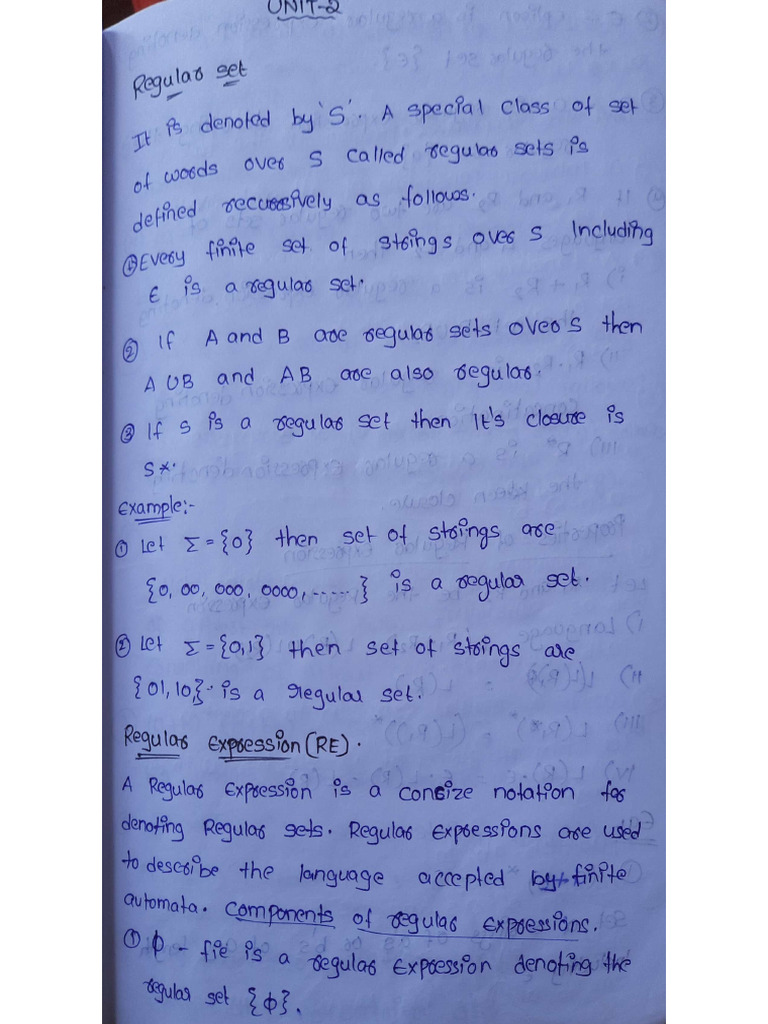 UNIT-2
Regular set
It is denoted by 'S'. A special class of set
of words over S called regular sets is
defined recursively as follows.
① Every finite set of strings over S Including
ε is a regular set.
② If A and B are regular sets over S then
A ∪ B and AB are also regular.
③ If S is a regular set then It's closure is
S*.
Example:-
① Let Σ = {0} then set of strings are
{0, 00, 000, 0000, ......} is a regular set.
② Let Σ = {0,1} then set of strings are
{01, 10,}. is a regular set.
Regular Expression (RE).
A Regular Expression is a concize notation for
denoting Regular sets. Regular Expressions are used
to describe the language accepted by finite
automata. Components of regular expressions.
① ϕ - fie is a regular expression denoting the
regular set {ϕ}.